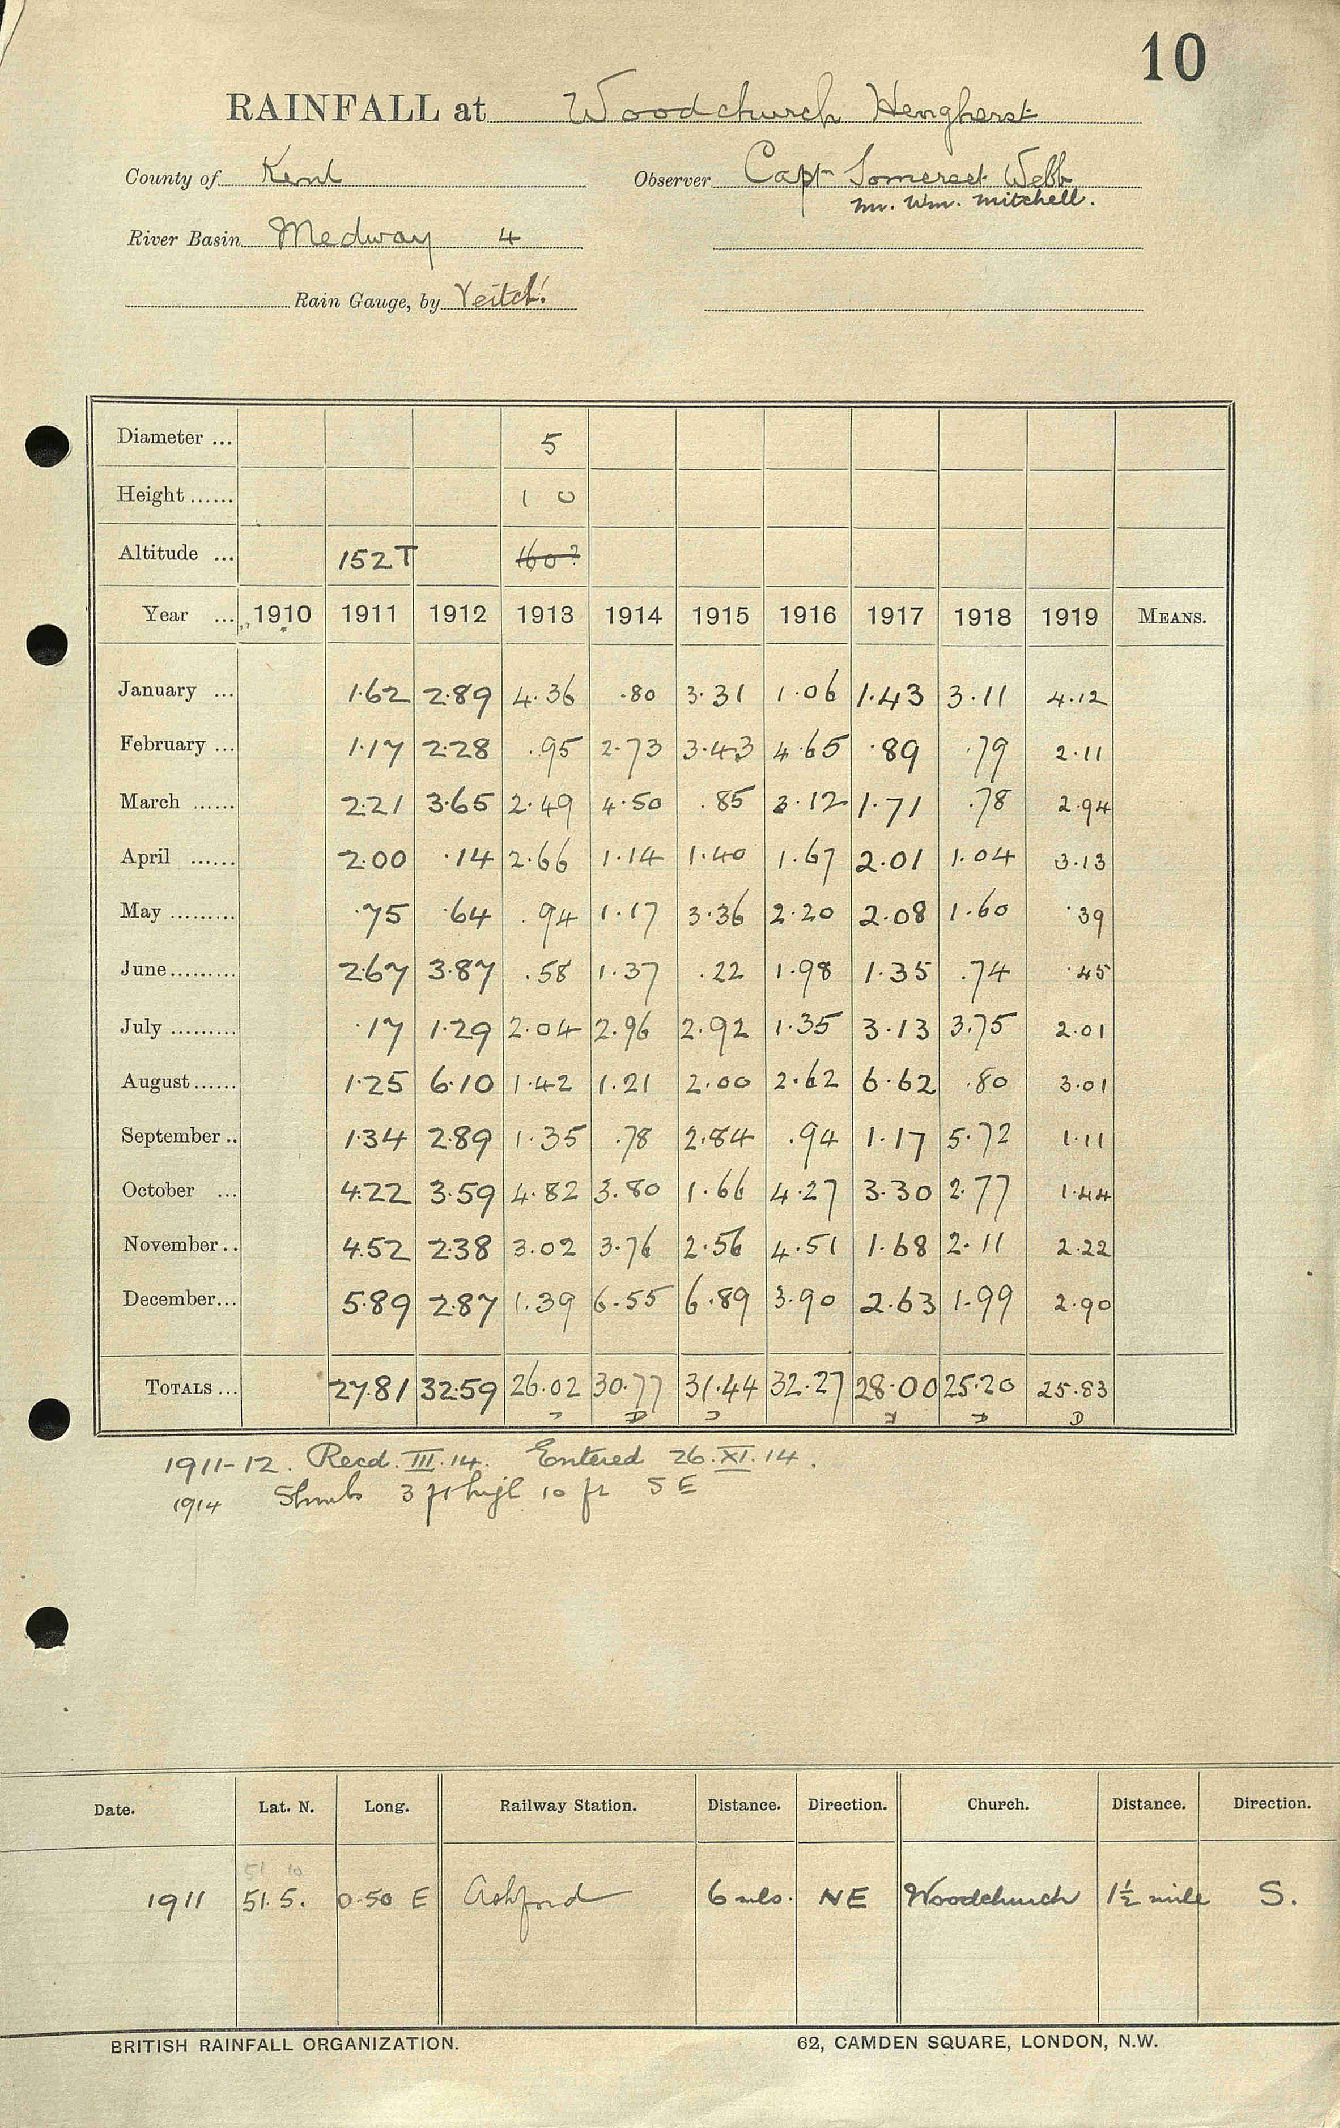 10
RAINFALL at Woodchurch Hengherst
County of Kent Observer Capt Somerset Webb
Mr. Wm. Mitchell.
River Basin Medway 4
Rain Gauge, by Veitch
Diameter ... 5
Height ...... 1 0
Altitude ... 152T 160?
Year ... 1910 1911 1912 1913 1914 1915 1916 1917 1918 1919 MEANS.
January ... 1.62 2.89 4.36 .80 3.31 1.06 1.43 3.11 4.12
February ... 1.17 2.28 .95 2.73 3.43 4.65 .89 .79 2.11
March ...... 2.21 3.65 2.49 4.50 .85 3.12 1.71 .78 2.94
April ...... 2.00 .14 2.66 1.14 1.40 1.67 2.01 1.04 3.13
May ......... .75 .64 .94 1.17 3.36 2.20 2.08 1.60 .39
June ......... 2.67 3.87 .58 1.37 .22 1.98 1.35 .74 .45
July ......... .17 1.29 2.04 2.96 2.92 1.35 3.13 3.75 2.01
August ...... 1.25 6.10 1.42 1.21 2.00 2.62 6.62 .80 3.01
September .. 1.34 2.89 1.35 .78 2.84 .94 1.17 5.72 1.11
October ... 4.22 3.59 4.82 3.80 1.66 4.27 3.30 2.77 1.44
November .. 4.52 2.38 3.02 3.76 2.56 4.51 1.68 2.11 2.22
December ... 5.89 2.87 1.39 6.55 6.89 3.90 2.63 1.99 2.90
TOTALS ... 27.81 32.59 26.02 30.77 31.44 32.27 28.00 25.20 25.83
D D
1911-12. Recd. III.14. Entered 26.XI.14.
1914 Shrubs 3 ft high 10 ft SE
Date. Lat. N. Long. Railway Station. Distance. Direction. Church. Distance. Direction.
51 10
1911 51.5. 0.50 E Ashford 6 mls. NE Woodchurch 1½ mile S.
BRITISH RAINFALL ORGANIZATION. 62, CAMDEN SQUARE, LONDON, N.W.